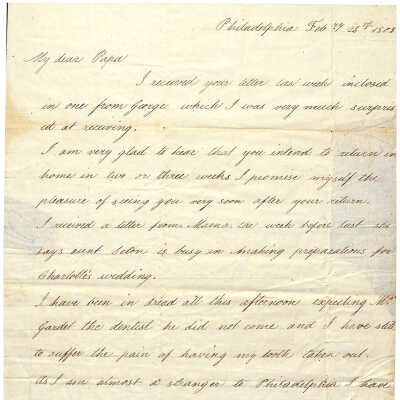 Philadelphia Feb ry 25th 1808
My dear Papa
I received your letter last week inclosed
in one from George which I was very much surpris
ed at receiving.
I am very glad to hear that you intend to return
home in two or three weeks I promise myself the
pleasure of seeing you very soon after your return.
I received a letter from Mama the week before last she
says aunt Seton is busy in making preparations for
Charlotte's wedding.
I have been in dread all this afternoon expecting Mr
Gardet the dentist he did not come and I have still
to suffer the pain of having my tooth taken out.
As I am almost a stranger to Philadelphia I have